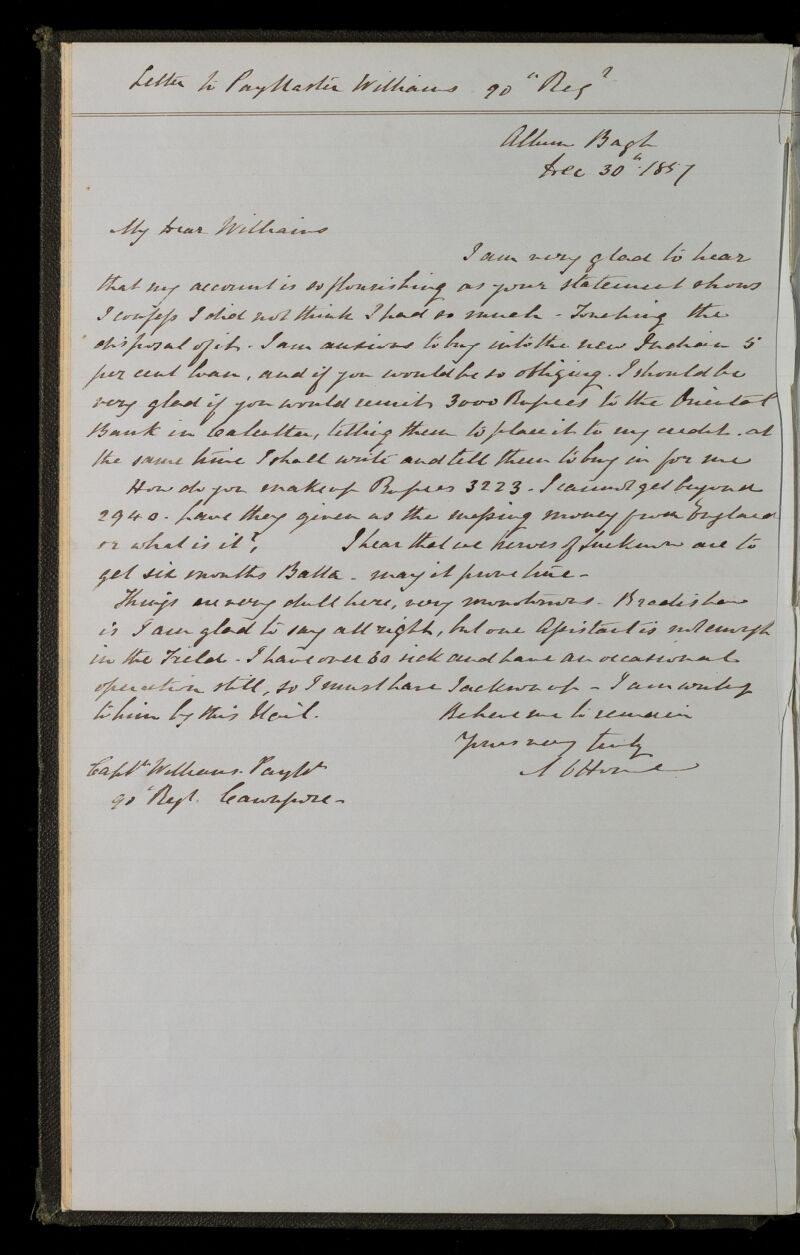 Letter to PayMaster Williams 90" Reg?
Allum Bagh
Dec 30" 1857
My dear Williams
I am very glad to hear
that my account is so flourishing as your statement shows
I confess I did not think I had so much - Touching the
disposal of it. I am anxious to buy into the new Indian 5
per cent loan, and if you would be so obliging. I should be
very glad if you would remit 3000 Rupees to the Oriental
Bank in Calcutta, telling them to place it to my credit. at
the same time I shall write and tell them to buy in for me
How do you make up Rupees 3223 - I cannot get beyond
2940 - have they given us the messing money from England
or what is it? I hear that we heroes of Lucknow are to
get six months Batta - may it prove true -
Things are very dull here, very monotonous - Bradshaw
is I am glad to say all right, but one Assistant is not enough
in the Field - I have over 60 sick and have an occasional
operation still, so I must have Jackson up - I am writing
to him by this Mail. Believe me to remain
Yours very truly
A D Home
Capt Williams Paymr
90" Regt. Cawnpore -